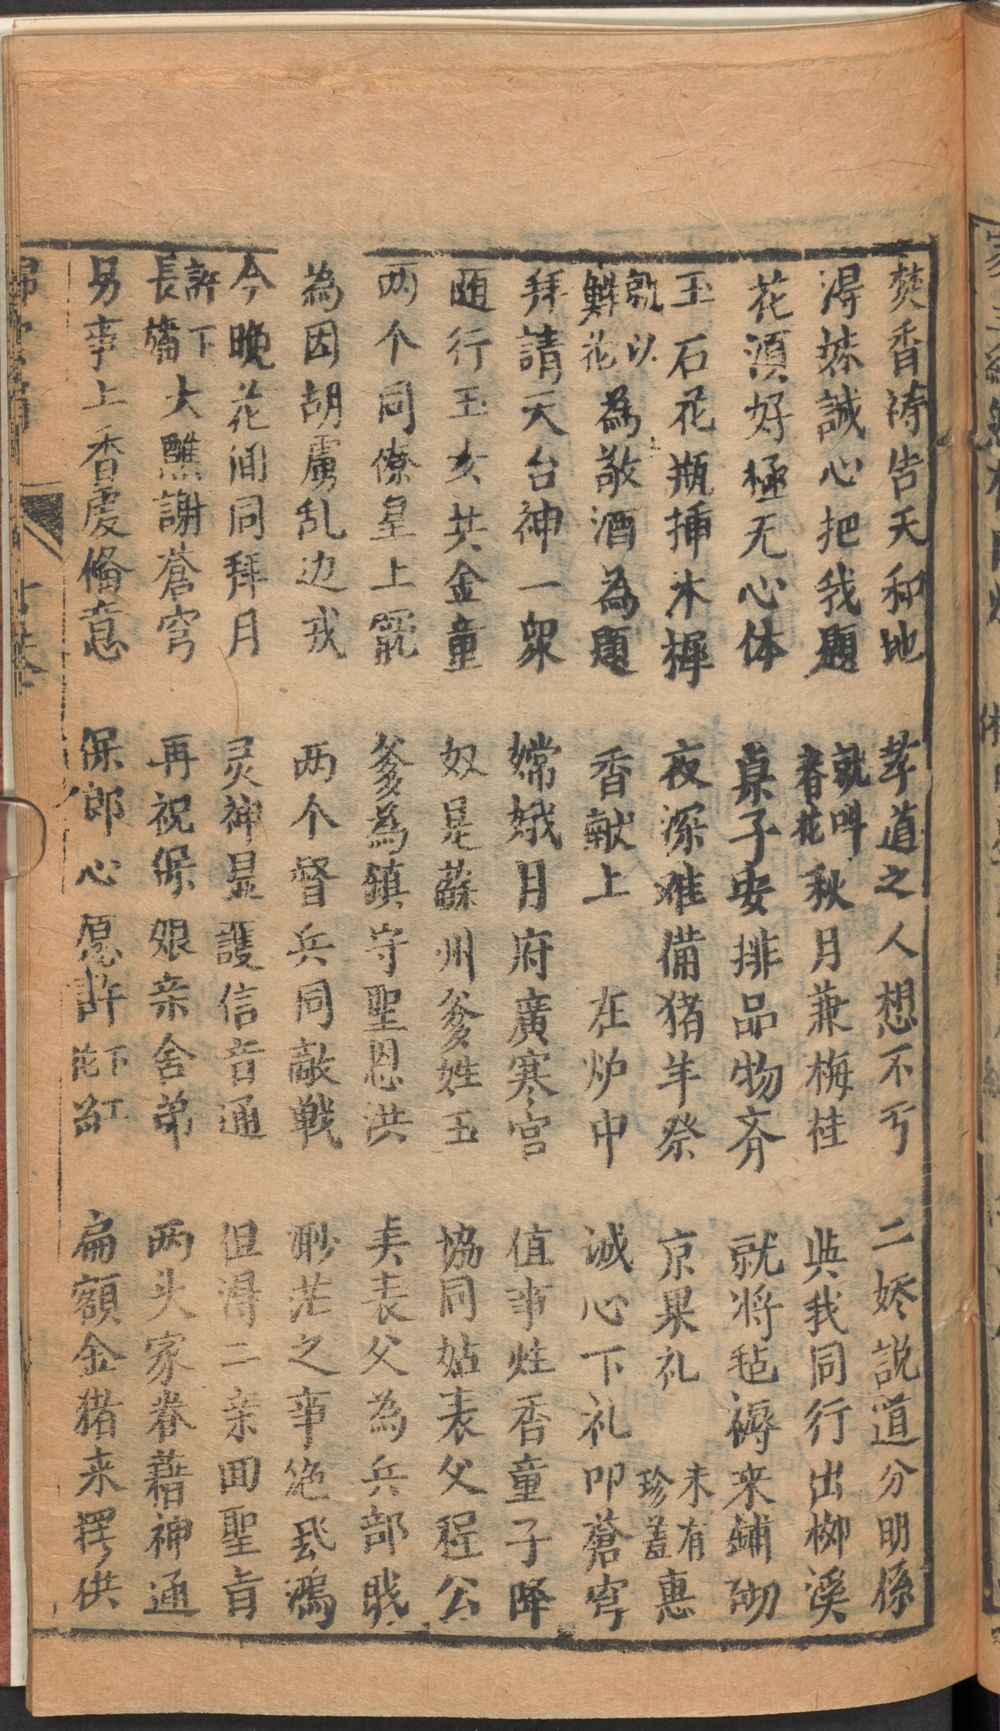 焚香禱告天和地　孝道之人想不丂　二嫽説道分明係
淂珠誠心把我題　就叫春花秋月兼梅桂　與我同行出柳溪
花湏好極无心体　桌子安排品物斉　就将毡褥来鋪砌
玉石花瓶揷木樨　夜深难備猪羊祭　京果礼未有珍羞惠
就以鮮花為敬酒為題　香献上　在炉中　誠心下礼叩蒼穹
拜請天台神一衆　嫦娥月府廣寒宫　值事炷香童子降
随行玉女共金童　奴是蘇州爹姓玉　協同姑表父程公
两个同僚皇上寵　爹為鎮守聖恩洪　表父為兵部戝
為因胡虜乱边戎　两个督兵同敵戦　茫之事绝飛鴻
今晚花间同拜月　灵神显護信音通　但淂二亲囬聖旨
許下長旛大醮謝蒼穹　再祝保娘亲舍弟　两头家眷藉神通
另事上香處偹意　保郎心愿許下花紅　扁額金猪来擇供